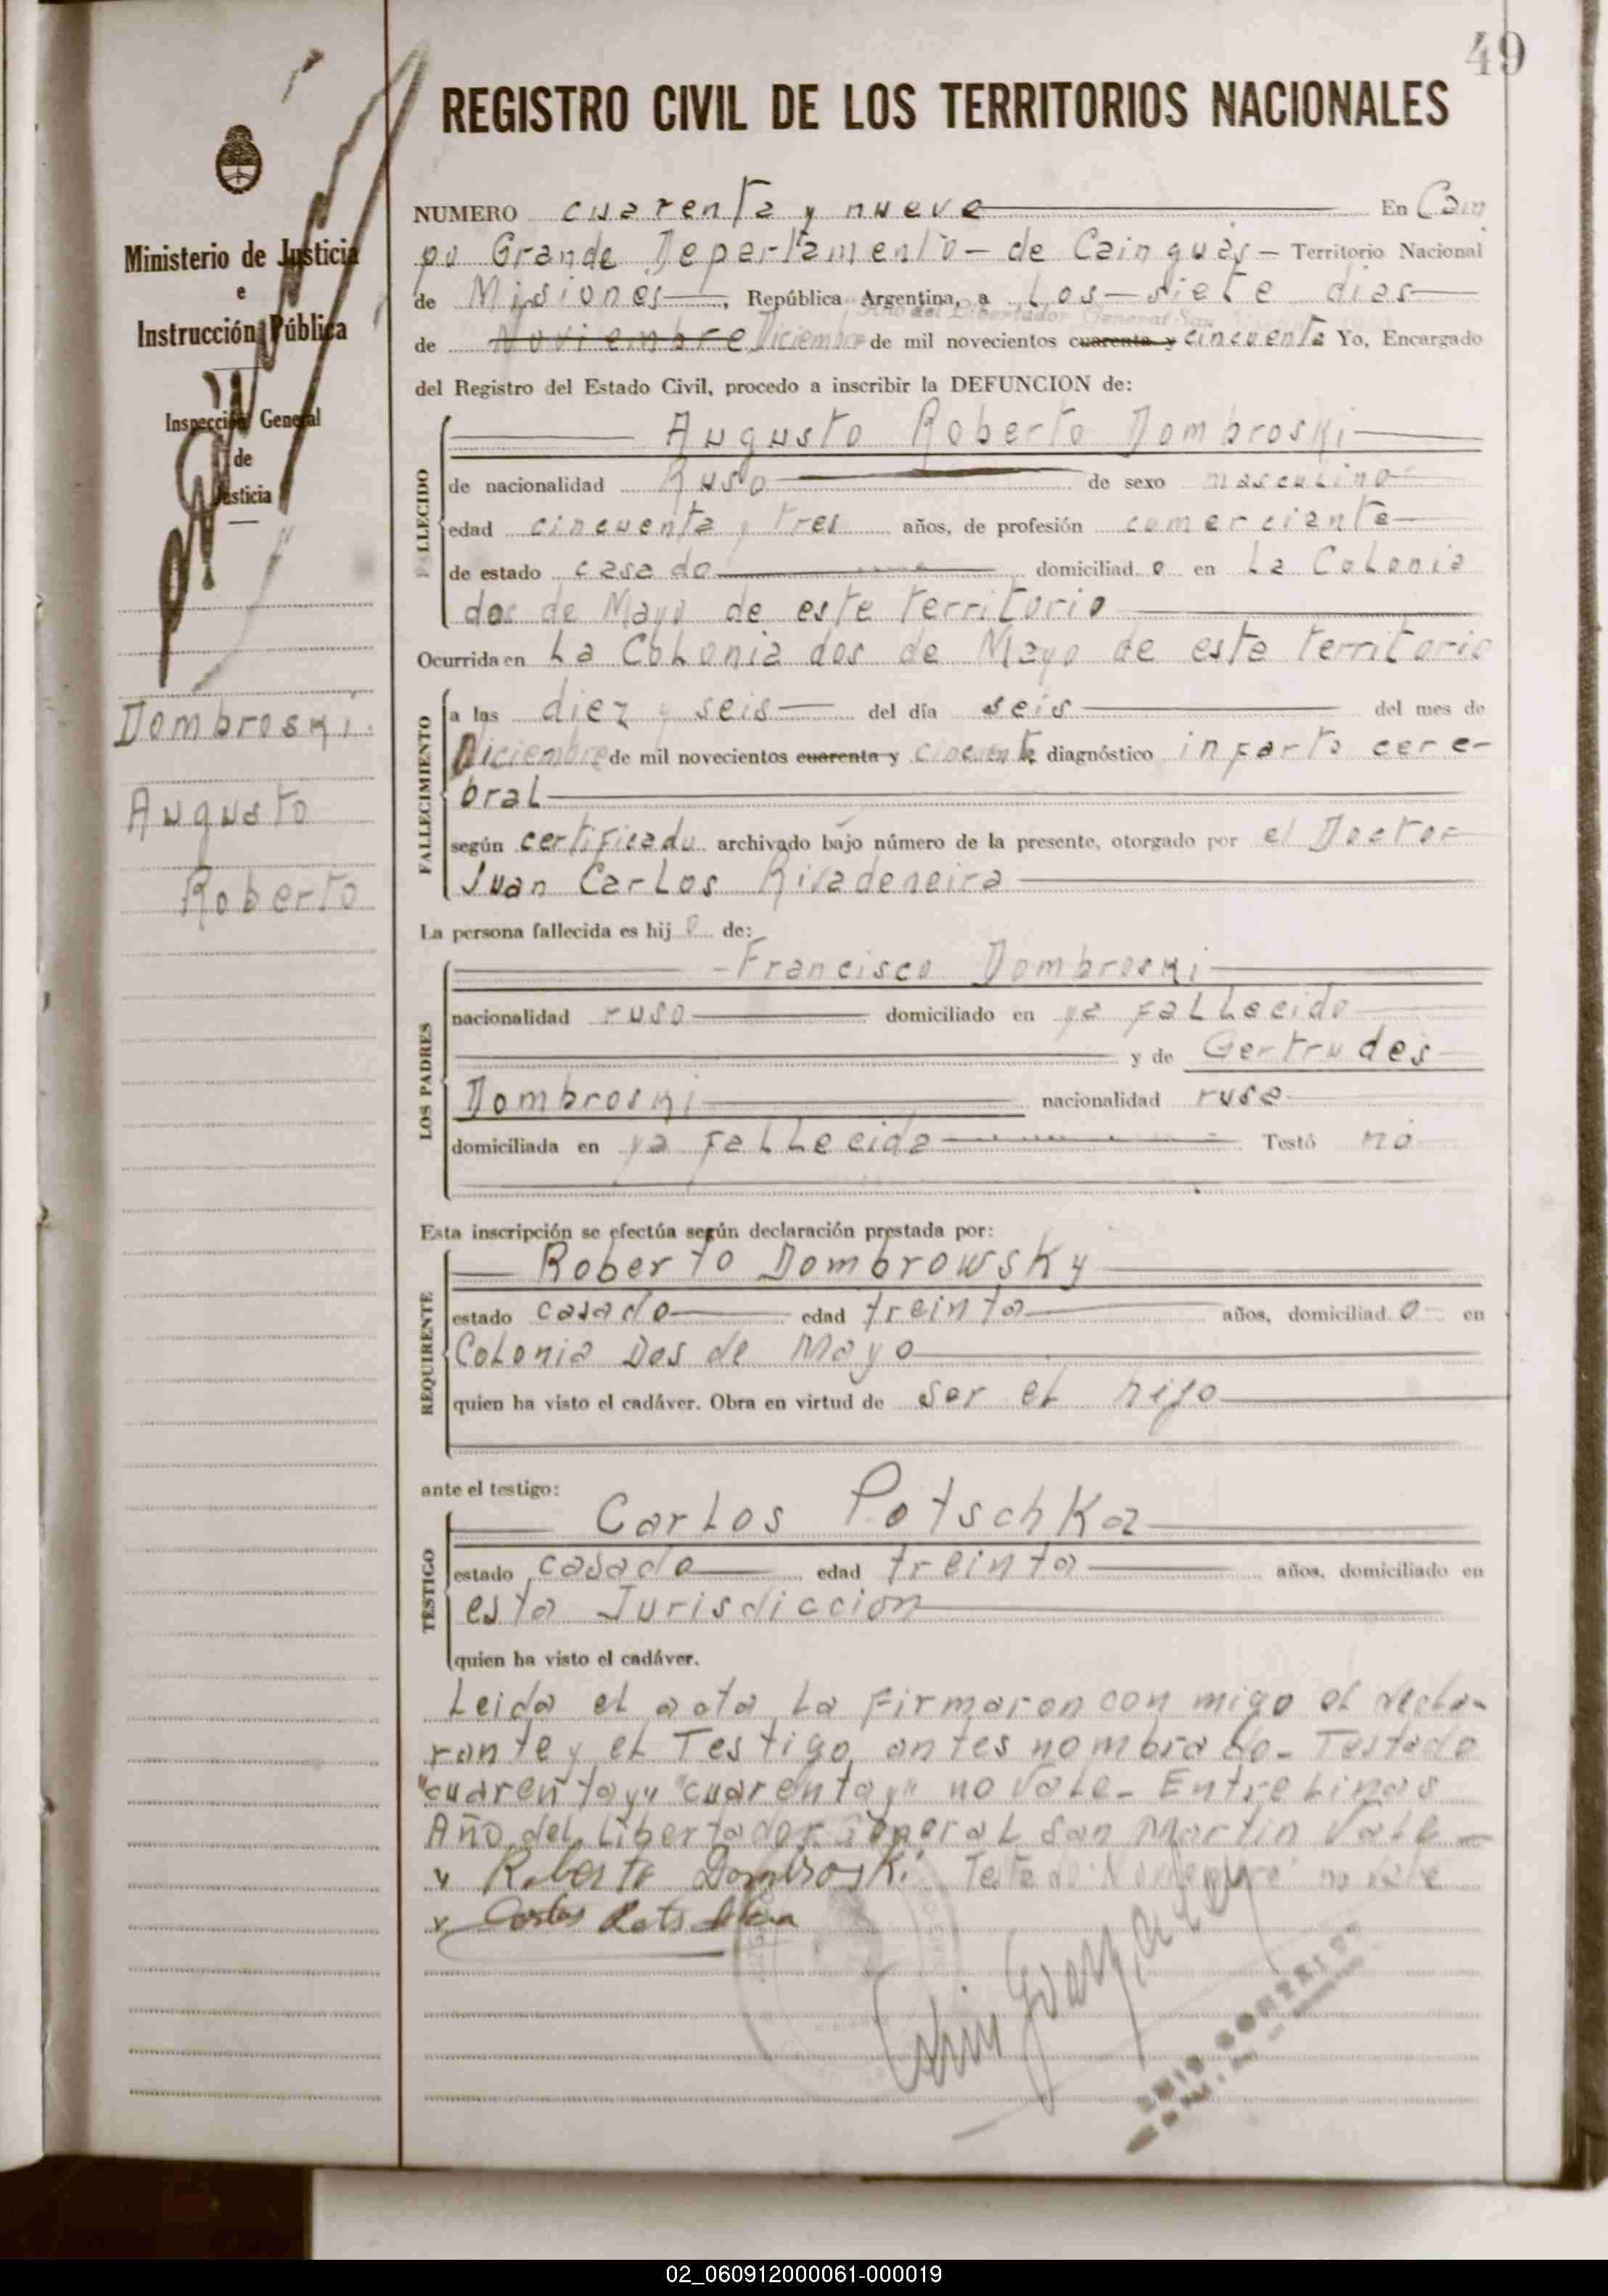 49
REGISTRO CIVIL DE LOS TERRITORIOS NACIONALES
Ministerio de Justicia
e
Instrucción Pública
Inspección General
de
Justicia
Dombroski
Augusto
Roberto
NUMERO cuarenta y nueve En Cam
po Grande Departamento - de Cainguás - Territorio Nacional
de Misiones, República Argentina, a Los siete dias
Año del Libertador General San
de Noviembre Diciembre de mil novecientos cuarenta y cincuenta Yo, Encargado
del Registro del Estado Civil, procedo a inscribir la DEFUNCION de:
FALLECIDO
Augusto Roberto Dombroski
de nacionalidad Ruso de sexo masculino
edad cincuenta y tres años, de profesión comerciante
de estado casado domiciliad o en La Colonia
dos de Mayo de este territorio
Ocurrida en La Colonia dos de Mayo de este territorio
FALLECIMIENTO
a las diez y seis del día seis del mes de
Diciembre de mil novecientos cuarenta y cincuenta diagnóstico infarto cere-
bral
según certificado archivado bajo número de la presente, otorgado por el Doctor
Juan Carlos Rivadeneira
La persona fallecida es hij o de:
LOS PADRES
Francisco Dombroski
nacionalidad ruso domiciliado en ya fallecido
y de Gertrudes
Dombroski nacionalidad rusa
domiciliada en ya fallecida Testó no
Esta inscripción se efectúa según declaración prestada por:
REQUIRENTE
Roberto Dombrowsky
estado casado edad treinta años, domiciliad o en
Colonia Dos de Mayo
quien ha visto el cadáver. Obra en virtud de ser el hijo
ante el testigo:
TESTIGO
Carlos Potschka
estado casado edad treinta años, domiciliado en
esta Jurisdiccion
quien ha visto el cadáver.
Leida el acta la firmaron con migo el decla-
rante y el Testigo antes nombrado - Testado
"cuarenta y" "cuarenta y" no Vale - Entre Linas
Año del Libertador General San Martin Vale -
Roberto Dombroski Testado: Noviembre no vale
Carlos
02_060912000061-000019